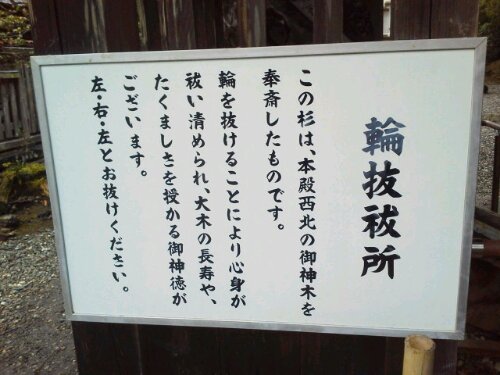 輪抜祓所
この杉は、本殿西北の御神木を
奉斎したものです。
輪を抜けることにより心身が
祓い清められ、大木の長寿や、
たくましさを授かる御神徳が
ございます。
左・右・左とお抜けください。